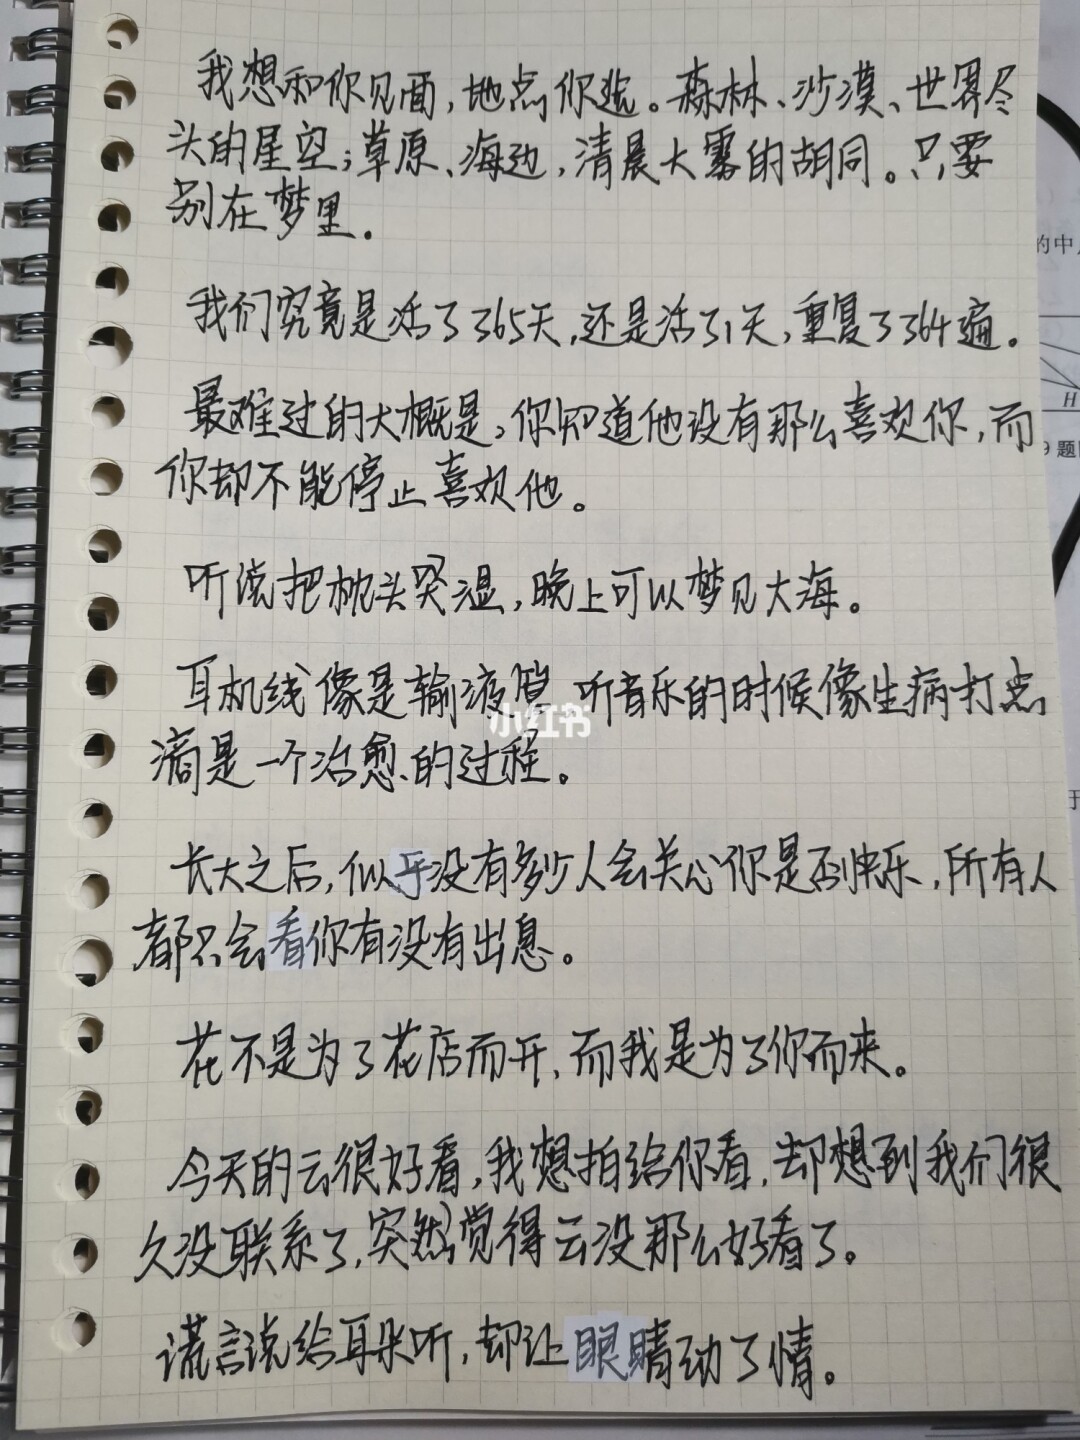 我想和你见面，地点你选。森林、沙漠、世界尽
头的星空；草原、海边，清晨大雾的胡同。只要
别在梦里.
我们究竟是活了365天，还是活了1天，重复了364遍。
最难过的大概是，你知道他没有那么喜欢你，而
你却不能停止喜欢他。
听说把枕头哭湿，晚上可以梦见大海。
耳机线像是输液管 听音乐的时候像生病打点
滴是一个治愈的过程。
小红书
长大之后，似乎没有多少人会关心你是否快乐，所有人
都只会看你有没有出息。
花不是为了花店而开，而我是为了你而来。
今天的云很好看，我想拍给你看，却想到我们很
久没联系了，突然觉得云没那么好看了。
谎言说给耳朵听，却让眼睛动了情。
的中
H
9题
于